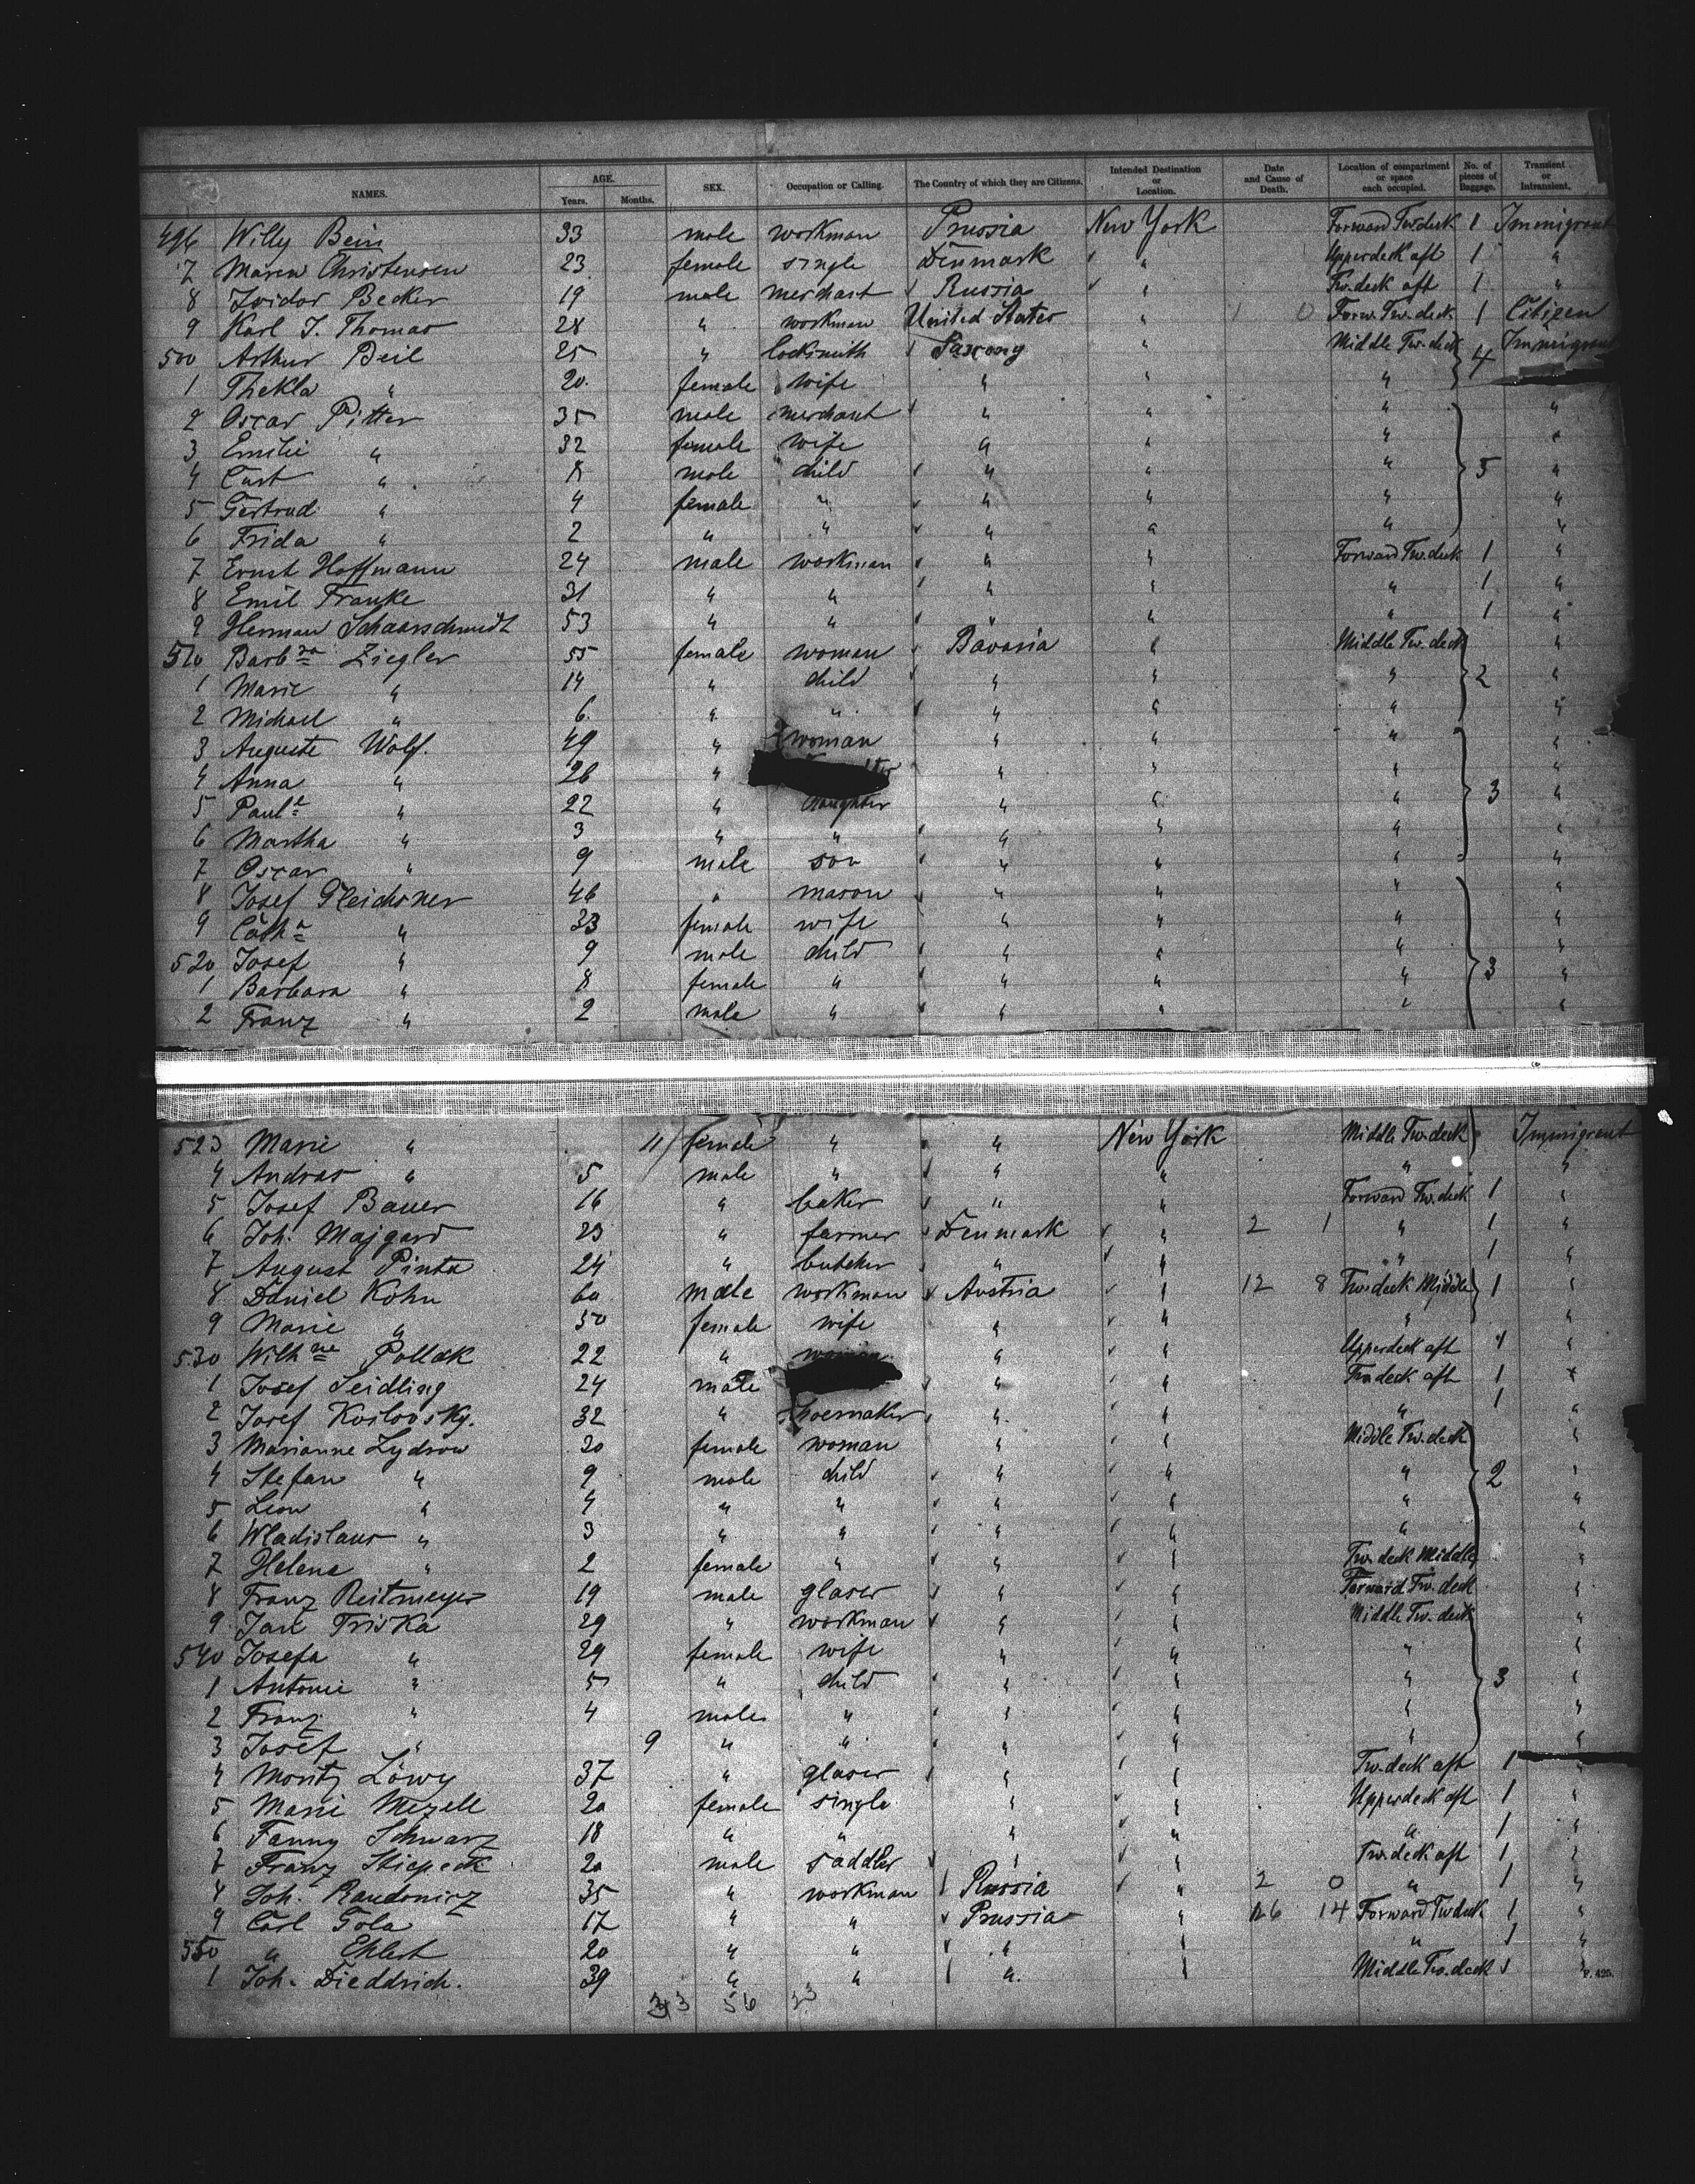 NAMES. AGE. Years. Months. SEX. Occupation or Calling. The Country of which they are Citizens. Intended Destination or Location. Date and Cause of Death. Location of compartment or space each occupied. No. of pieces of Baggage. Transient or Intransient.
496 Willy Bein 33 male workman Prussia New York Forward Tw. deck 1 Immigrant
7 Maren Christensen 23 female single Denmark " Upperdeck aft 1 "
8 Isidor Becker 19 male merchant Russia " Tw. deck aft 1 "
9 Karl J. Thomas 28 " workman United States " 1 0 Forw. Tw. deck 1 Citizen
500 Arthur Beil 25 " locksmith Saxony " Middle Tw. deck 4 Immigrant
1 Thekla " 20 female wife " " "
2 Oscar Pitter 35 male merchant " " " "
3 Emilie " 32 female wife " " " "
4 Curt " 8 male child " " " 5 "
5 Gertrud " 4 female " " " " "
6 Frida " 2 " " " " " "
7 Ernst Hoffmann 24 male workman " " Forward Tw. deck 1 "
8 Emil Franke 31 " " " " " 1 "
9 Herman Schaarschmidt 53 " " " " " 1 "
510 Barbra Ziegler 55 female woman Bavaria " Middle Tw. deck "
1 Marie " 14 " child " " " 2 "
2 Michael " 6 " " " " " "
3 Auguste Wolf. 49 " woman " " " "
4 Anna " 26 " " " " "
5 Paule " 22 " daughter " " " 3 "
6 Martha " 3 " " " " " "
7 Oscar " 9 male son " " " "
8 Josef Gleichsner 46 " mason " " " "
9 Catha " 33 female wife " " " "
520 Josef " 9 male child " " " "
1 Barbara " 8 female " " " " 3 "
2 Franz " 2 male " " " " "
523 Marie " 11 female " " New York Middle Tw. deck Immigrant
4 Andras " 5 male " " " " "
5 Josef Bauer 16 " baker " " Forward Tw. deck 1 "
6 Joh. Majgard 23 " farmer Denmark " 2 1 " 1 "
7 August Pinta 24 " butcher " " " 1 "
8 Daniel Kohn 60 male workman Austria " 12 8 Tw. deck Middle 1 "
9 Marie " 50 female wife " " " "
530 Wilhne Pollak 22 " woman " " Upperdeck aft 1 "
1 Josef Seidling 24 male " " Tw. deck aft 1 "
2 Josef Koslovsky. 32 " shoemaker " " " 1 "
3 Marianne Zydrow 30 female woman " " Middle Tw. deck "
4 Stefan " 9 male child " " " 2 "
5 Leon " 4 " " " " " "
6 Wladislaus " 3 " " " " " "
7 Helena " 2 female " " " Tw. deck Middle "
8 Franz Reitmeyer 19 male glaser " " Forward Tw. deck "
9 Jan Triska 29 " workman " " Middle Tw. deck "
540 Josefa " 29 female wife " " " "
1 Antonie " 5 " child " " " 3 "
2 Franz " 4 male " " " " "
3 Josef " 9 " " " " " "
4 Moritz Löwy 37 " glaser " " Tw. deck aft 1 "
5 Marie Mezell 20 female single " " Upperdeck aft 1 "
6 Fanny Schwarz 18 " " " " " 1 "
7 Franz Stiepeck 20 male saddler " " Tw. deck aft 1 "
8 Joh. Raudonicz 35 " workman Russia " 2 0 " 1 "
9 Carl Gola 17 " " Prussia " 26 14 Forward Tw. deck 1 "
550 " Ehlert 20 " " " " " 1 "
1 Joh. Dieddrich. 39 " " " " Middle Tw. deck 1 "
33 56 33